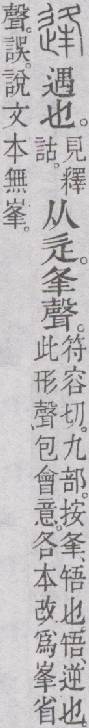 逢遇也。見釋
詁。
从辵。夆聲。
符容切。九部。按夆、啎也。啎、逆也。
此形聲包會意。各本改爲峯省
聲。誤。說文本無峯。